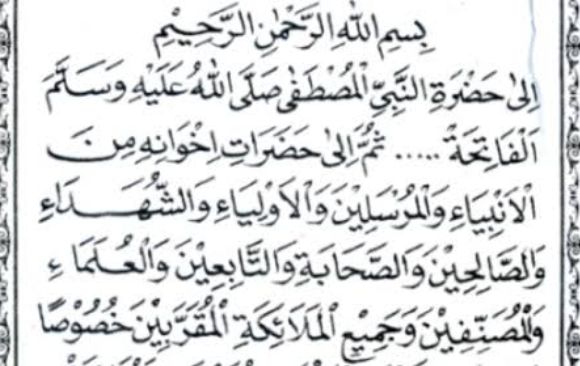 بِسْمِ اللهِ الرَّحْمٰنِ الرَّحِيْمِ
اِلىٰ حَضْرَةِ النَّبِيِّ الْمُصْطَفٰى صَلَّى اللهُ عَلَيْهِ وَسَلَّمَ
اَلْفَاتِحَةْ ..... ثُمَّ اِلىٰ حَضَرَاتِ اِخْوَانِهِ مِنَ
الْاَنْبِيَاءِ وَالْمُرْسَلِيْنَ وَالْاَوْلِيَاءِ وَالشُّهَدَاءِ
وَالصَّالِحِيْنَ وَالصَّحَابَةِ وَالتَّابِعِيْنَ وَالْعُلَمَاءِ
وَالْمُصَنِّفِيْنَ وَجَمِيْعِ الْمَلَائِكَةِ الْمُقَرَّبِيْنَ خُصُوْصًا